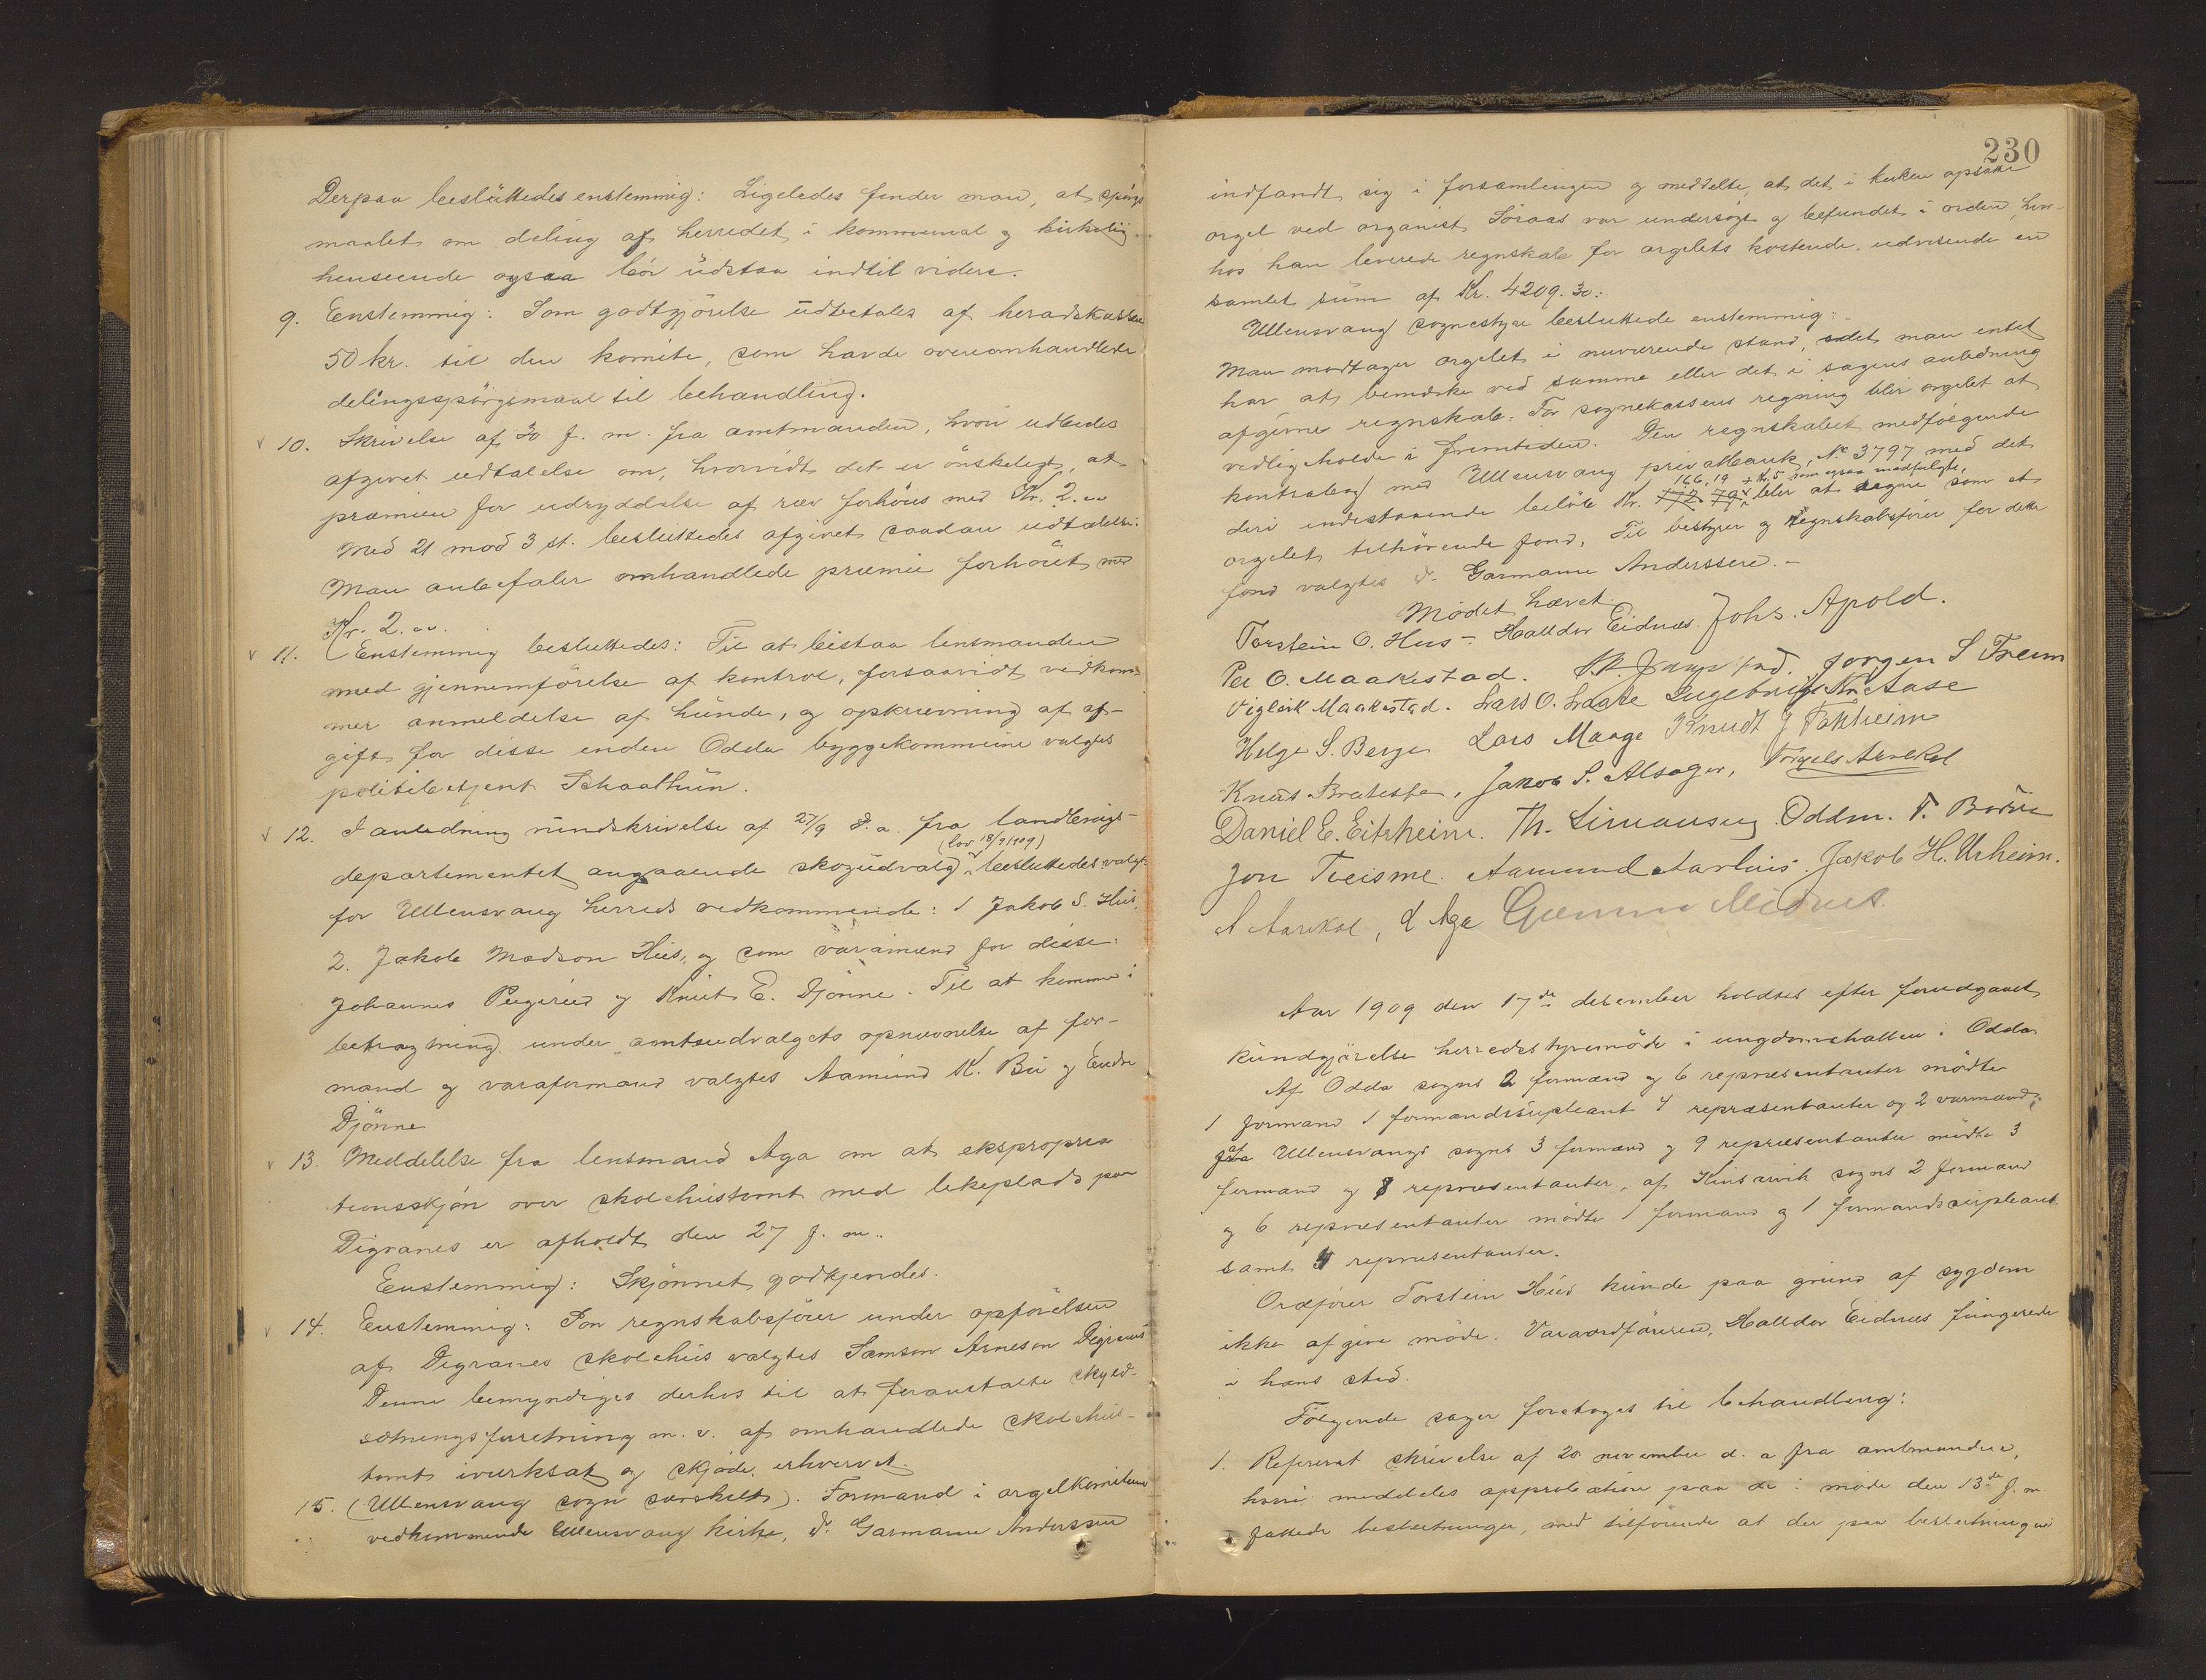 Derpaa besluttedes enstemmig: Ligeledes finder man, at spörgs
maalet om deling af herredet i kommunal og kirkelig
henseende ogsaa bör udstaa indtil videre.
9. Enstemmig: Som godtgjörelse udbetales af heradskassen
50 kr. til den komite, som havde ovenomhandlede
delingsspörgsmaal til behandling.
10. Skrivelse af 30 f. m. fra amtmanden, hvori udbedes
afgivet udtalelse om, hvorvidt det er önskeligt, at
præmien for udryddelse af ræv forhöies med Kr. 2.00
Med 21 mod 3 st. besluttedes afgivet saadan udtalelse:
Man anbefaler omhandlede præmie forhöiet med
Kr. 2.00.
11. Enstemmig besluttedes: Til at bistaa lensmanden
med gjennemförelse af kontrol, forsaavidt vedkom-
mer anmeldelse af hunde, og opkrævning af af-
gift for disse inden Odda byggekommune valgtes
politibetjent Schaathun.
12. I anledning rundskrivelse af 27/9 d. a. fra landbrugs-
(lov 18/9 1909)
departementet angaaende skogudvalg besluttedes valgt
for Ullensvang herreds vedkommende: 1 Jakob S. Hus,
2. Jakob Madson Hus, og som varamænd for disse:
Johannes Pugerud og Knut E. Djönne. Til at komme i
betragtning under amtsudvalgets opnævnelse af for-
mand og varaformand valgtes Aamund K. Bu og Endre
Djönne
13. Meddelelse fra lensmand Aga om at ekspropria
tionsskjön over skolehustomt med lekeplads paa
Digranes er afholdt den 27 f. m..
Enstemmig: Skjönnet godkjendes.
14. Enstemmig: Som regnskabsförer under opförelsen
af Digranes skolehus valgtes Samson Arneson Digranes
Denne bemyndiges derhos til at foranstalte skyld-
sætningsforretning m. v. af omhandlede skolehus-
tomt iverksat og skjöde erhvervet.
15. (Ullensvang sogn særskilt). Formand i orgelkomiteen
vedkommende Ullensvang kirke, Dr. Garmann Anderssen
230
indfandt sig i forsamlingen og meddelte, at det i kirken opsatte
orgel ved organist Söraas var undersögt og befundet i orden, hvor-
hos han leverede regnskab for orgelets kostende, udvisende en
samlet sum af Kr. 4209.30.
Ullensvang sognestyre besluttede enstemmig:
Man modtager orgelet i nuværende stand, idet man intet
har at bemerke ved samme eller det i sagens anledning
afgivne regnskab. For sognekassens regning blir orgelet at
vedligeholde i fremtiden. Den regnskabet medfölgende
kontrabog med Ullensvang privatbank, No 3797 med det
166,19 + Kr. 5 som ogsaa medfulgte,
deri indestaaende belöb Kr. 172.79 blir at ansee som et
orgelet tilhörende fond. Til bestyrer og regnskabsförer for dette
fond valgtes Dr. Garmann Anderssen.
Mödet hævet.
Torstein O. Hus - Halldor Eidnes. Johs. Apold.
Per O. Maakestad. Jorgen S Freim
Vigleik Maakestad. Lars O. Ingebrigt Aase
Helge S. Berge Lars Maage Knudt J Tokheim
Knut Bratespe, Jakob P. Alsager, Torgels Aarekol
Daniel E. Eitrheim. Th. Simonsen Oddm. T.
Jon Tveisme. Aamund Aarhuis. Jakob H. Urheim.
A Aarekol, d Aga Gunnar
Aar 1909 den 17de desember holdtes efter forudgaaet
kundgjörelse herredstyremöde i ungdomshallen i Odda
Af Odda sogns 2 formænd og 6 repræsentanter mödte
1 formand 1 formandssupleant 4 repræsentanter og 2 varmænd,
af Ullensvangs sogns 3 formænd og 9 repræsentanter mödte 3
formænd og 8 repræsentanter, af Kinsarvik sogns 2 formænd
og 6 repræsentanter mödte 1 formand og 1 formandssupleant
samt 4 repræsentanter.
Ordförer Torstein Hus kunde paa grund af sygdom
ikke afgive möde. Varaordföreren, Halldor Eidnes fungerede
i hans sted.
Fölgende sager foretoges til behandling:
1. Referert skrivelse af 20 november d. a fra amtmanden,
hvori meddeles approbation paa de i möde den 13de f. m
fattede beslutninger, med tilföiende at der paa beslutningen